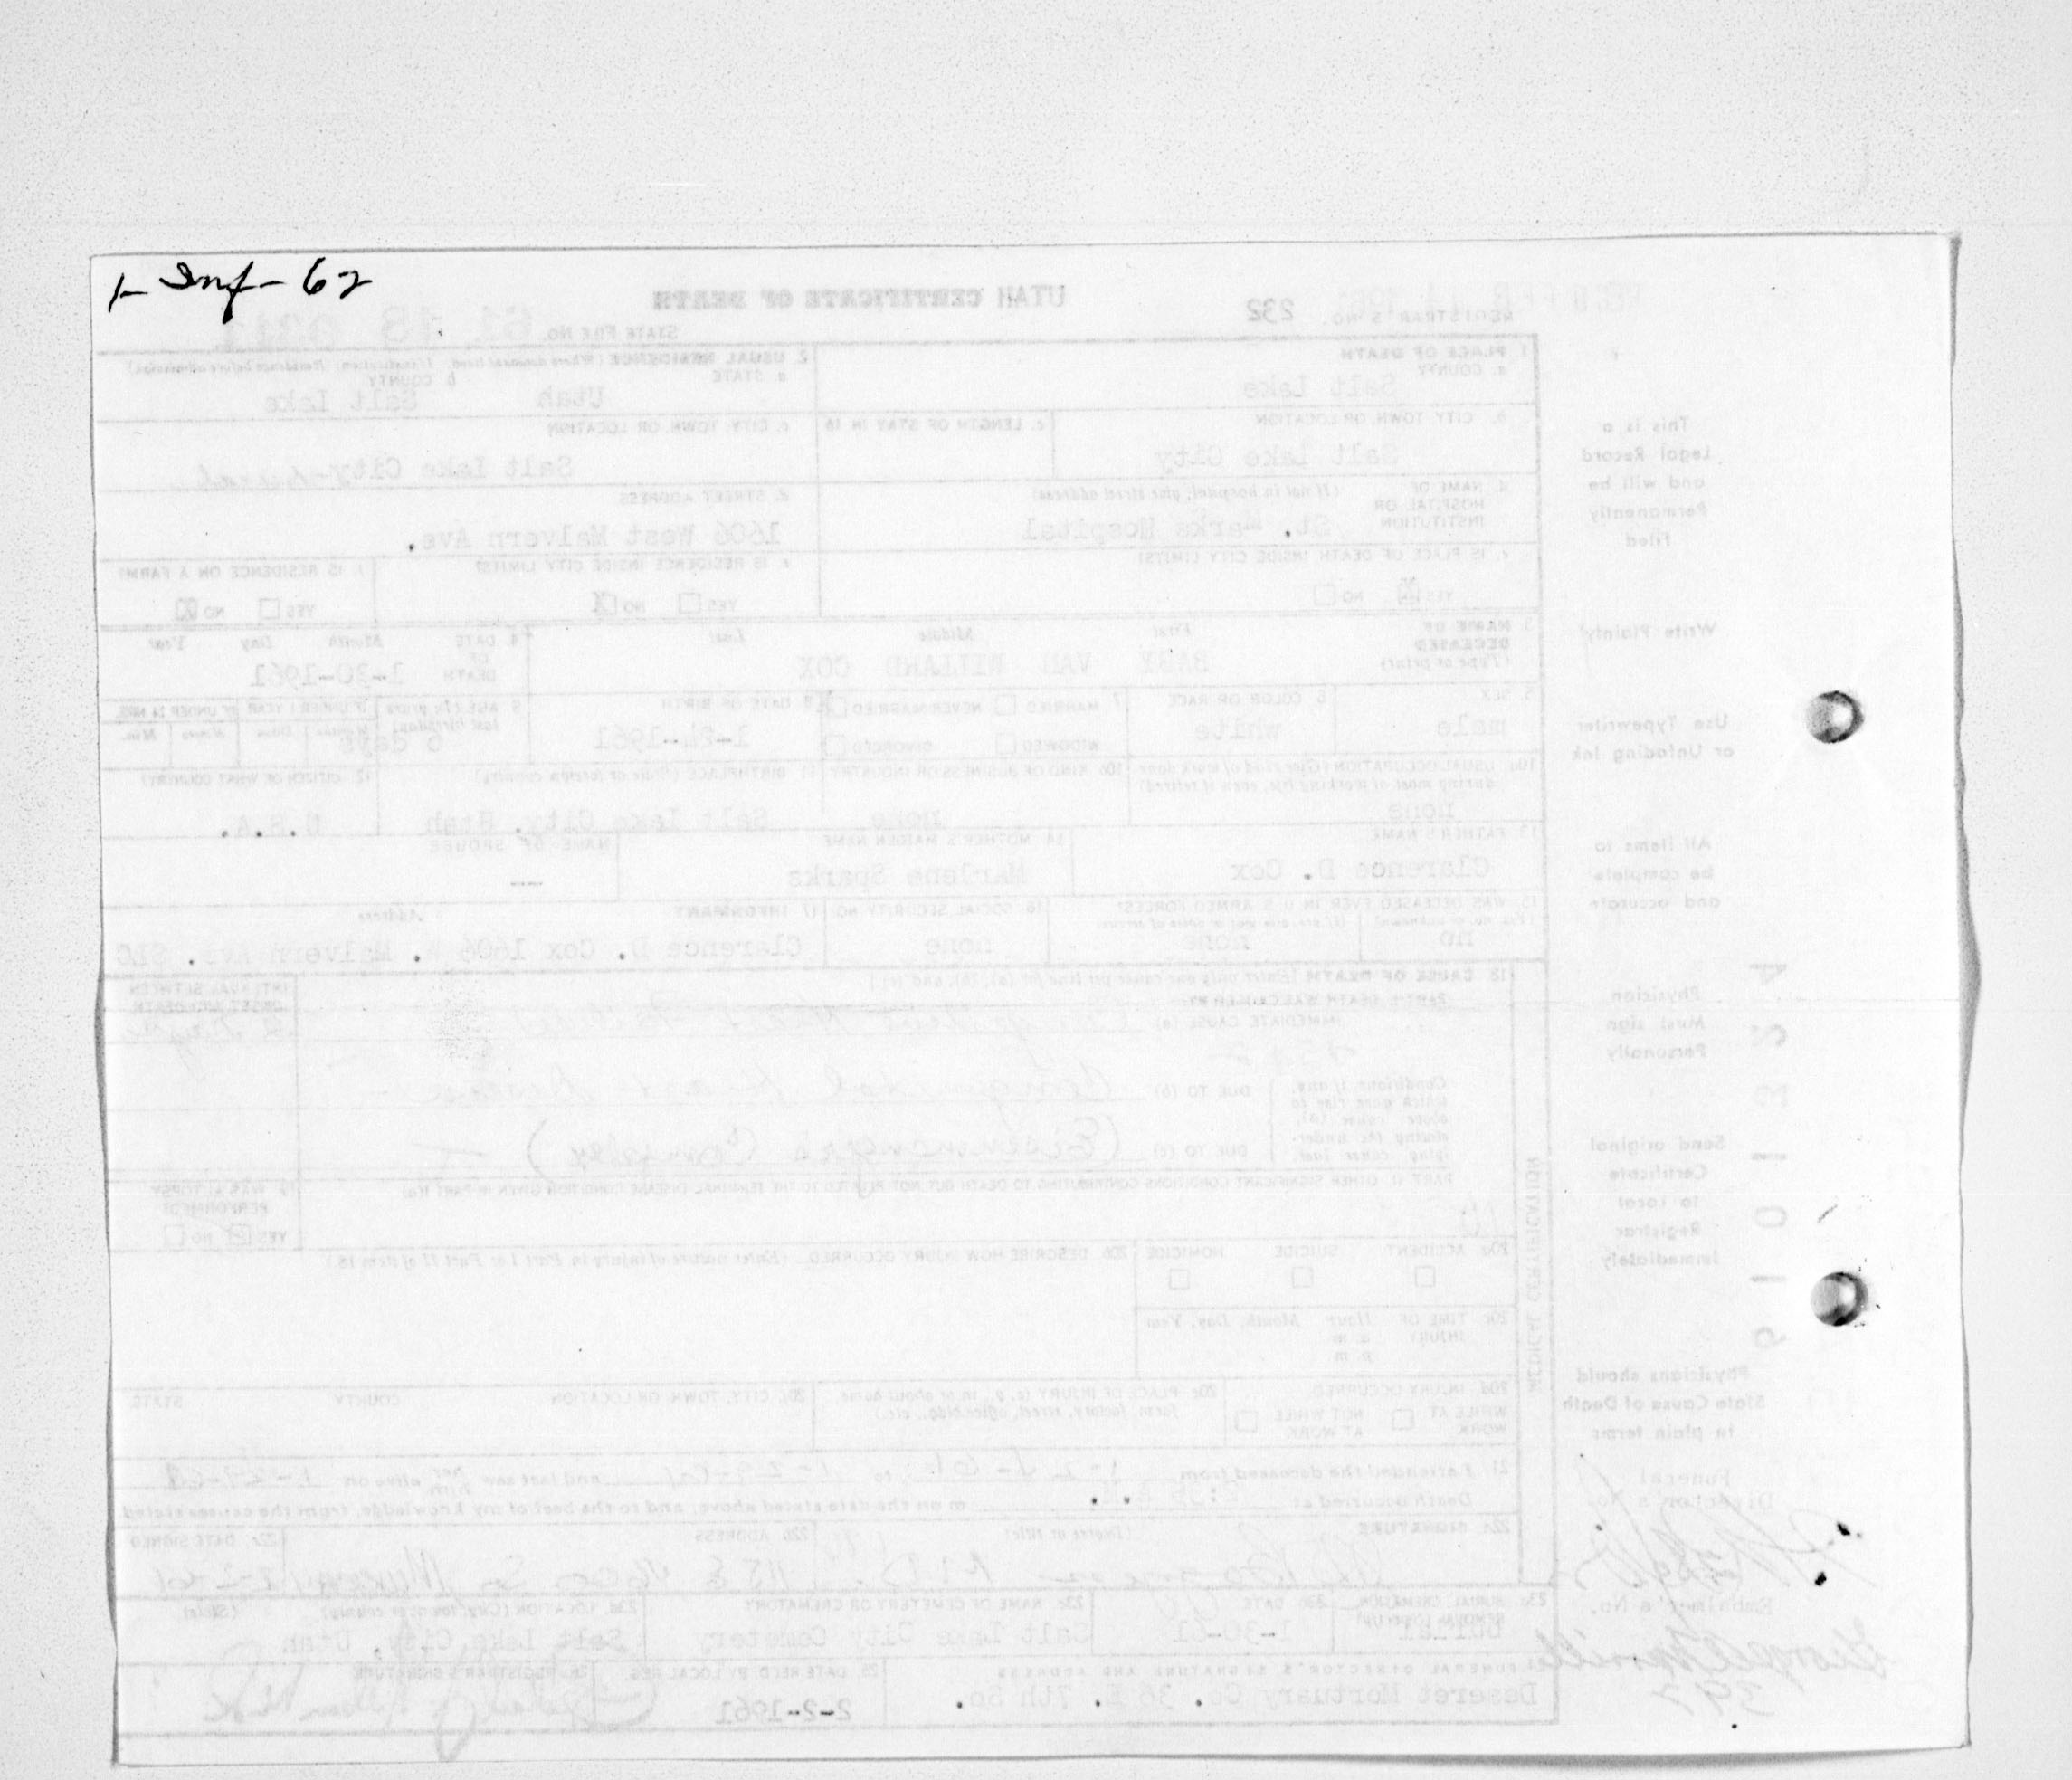 1- Inf - 62
UTAH CERTIFICATE OF DEATH
REGISTRAR'S NO. 232
STATE FILE NO. 61 18
1. PLACE OF DEATH
a. COUNTY
Salt Lake
2. USUAL RESIDENCE (Where deceased lived. If institution: Residence before admission)
a. STATE b. COUNTY
Utah Salt Lake
b. CITY, TOWN, OR LOCATION
Salt Lake City
c. LENGTH OF STAY IN 1b
c. CITY, TOWN, OR LOCATION
Salt Lake City
d. NAME OF HOSPITAL OR INSTITUTION (If not in hospital, give street address)
St. Marks Hospital
d. STREET ADDRESS
1606 West Malvern Ave.
e. IS PLACE OF DEATH INSIDE CITY LIMITS?
YES NO
e. IS RESIDENCE INSIDE CITY LIMITS?
YES NO X
f. IS RESIDENCE ON A FARM?
YES NO
3. NAME OF DECEASED (Type or print)
First Middle Last
BABY VAN WILLARD COX
4. DATE OF DEATH Month Day Year
1-30-1961
5. SEX
male
6. COLOR OR RACE
white
7. MARRIED NEVER MARRIED
WIDOWED DIVORCED
8. DATE OF BIRTH
1-24-1961
9. AGE (In years last birthday) IF UNDER 1 YEAR IF UNDER 24 HRS.
Months Days Hours Min.
6 days
10a. USUAL OCCUPATION (Give kind of work done during most of working life, even if retired)
none
10b. KIND OF BUSINESS OR INDUSTRY
none
11. BIRTHPLACE (State or foreign country)
Salt Lake City, Utah
12. CITIZEN OF WHAT COUNTRY?
U.S.A.
13. FATHER'S NAME
Clarence D. Cox
14. MOTHER'S MAIDEN NAME
Marlene Sparks
NAME OF SPOUSE
---
15. WAS DECEASED EVER IN U.S. ARMED FORCES?
(Yes, no, or unknown) (If yes, give war or dates of service)
no none
16. SOCIAL SECURITY NO.
none
17. INFORMANT Address
Clarence D. Cox 1606 W. Malvern Ave. SLC
18. CAUSE OF DEATH [Enter only one cause per line for (a), (b), and (c).]
PART I. DEATH WAS CAUSED BY:
IMMEDIATE CAUSE (a)
INTERVAL BETWEEN ONSET AND DEATH
Conditions, if any, which gave rise to above cause (a), stating the underlying cause last.
DUE TO (b) Congenital Heart Disease
DUE TO (c) (Eisenmenger's Complex)
PART II. OTHER SIGNIFICANT CONDITIONS CONTRIBUTING TO DEATH BUT NOT RELATED TO THE TERMINAL DISEASE CONDITION GIVEN IN PART I(a)
19. WAS AUTOPSY PERFORMED?
YES NO
20a. ACCIDENT SUICIDE HOMICIDE
20b. DESCRIBE HOW INJURY OCCURRED. (Enter nature of injury in Part I or Part II of item 18.)
20c. TIME OF INJURY Hour Month, Day, Year
a. m.
p. m.
20d. INJURY OCCURRED
WHILE AT WORK NOT WHILE AT WORK
20e. PLACE OF INJURY (e. g., in or about home, farm, factory, street, office bldg., etc.)
20f. CITY, TOWN, OR LOCATION COUNTY STATE
21. I attended the deceased from to 1-29-61 and last saw her him alive on 1-29-61
Death occurred at m on the date stated above; and to the best of my knowledge, from the causes stated.
22a. SIGNATURE (Degree or title)
M.D.
22b. ADDRESS
Murray
22c. DATE SIGNED
23a. BURIAL, CREMATION, REMOVAL (Specify)
Burial
23b. DATE
1-30-61
23c. NAME OF CEMETERY OR CREMATORY
Salt Lake City Cemetery
23d. LOCATION (City, town, or county) (State)
Salt Lake City, Utah
24. FUNERAL DIRECTOR'S SIGNATURE AND ADDRESS
Deseret Mortuary Co. 36 E. 7th So.
25. DATE REC'D BY LOCAL REG.
2-2-1961
26. REGISTRAR'S SIGNATURE
MEDICAL CERTIFICATION
This is a
Legal Record
and will be
Permanently
Filed
Write Plainly
Use Typewriter
or Unfading Ink
All items to
be complete
and accurate
Physician
Must sign
Personally
Send original
Certificate
to Local
Registrar
Immediately
Physicians should
State Cause of Death
in plain terms
Funeral
Director's No.
Embalmer's No.
397